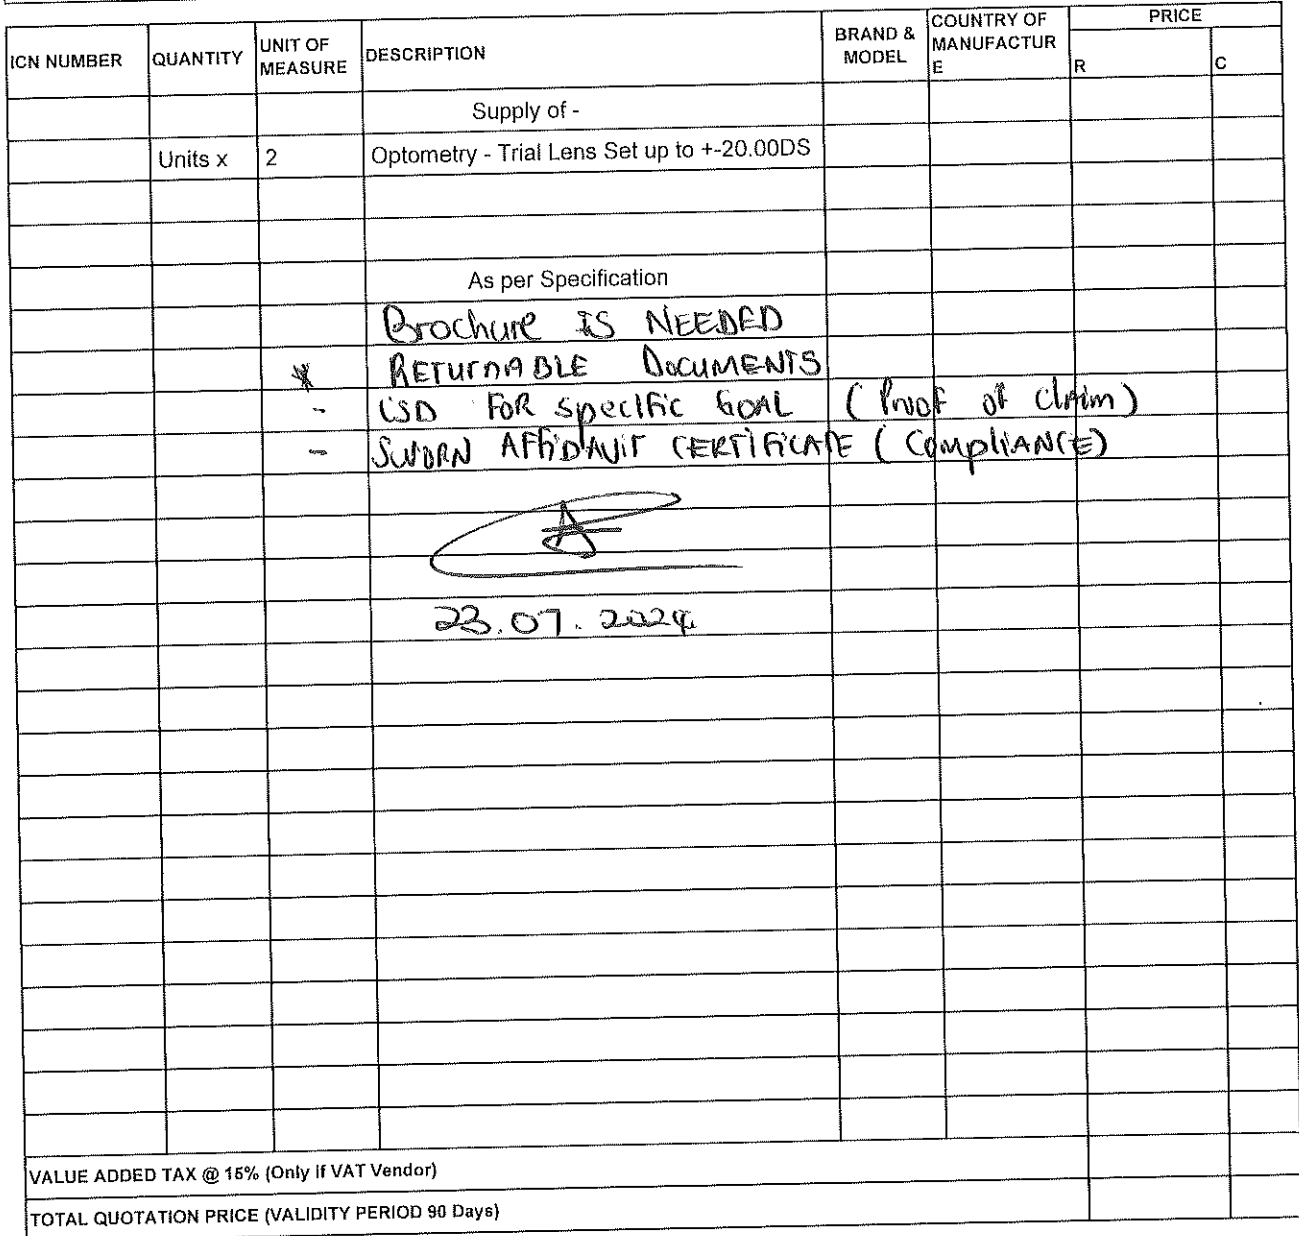 ICN NUMBER QUANTITY UNIT OF MEASURE DESCRIPTION BRAND & MODEL COUNTRY OF MANUFACTUR E PRICE R C
Supply of -
Units x 2 Optometry - Trial Lens Set up to +-20.00DS
As per Specification
Brochure IS NEEDED
* RETURNABLE DOCUMENTS
- CSD FOR specific GOAL (Proof of Claim)
- SWORN AFFIDAVIT CERTIFICATE (COMPLIANCE)
23.07.2024
VALUE ADDED TAX @ 15% (Only if VAT Vendor)
TOTAL QUOTATION PRICE (VALIDITY PERIOD 90 Days)